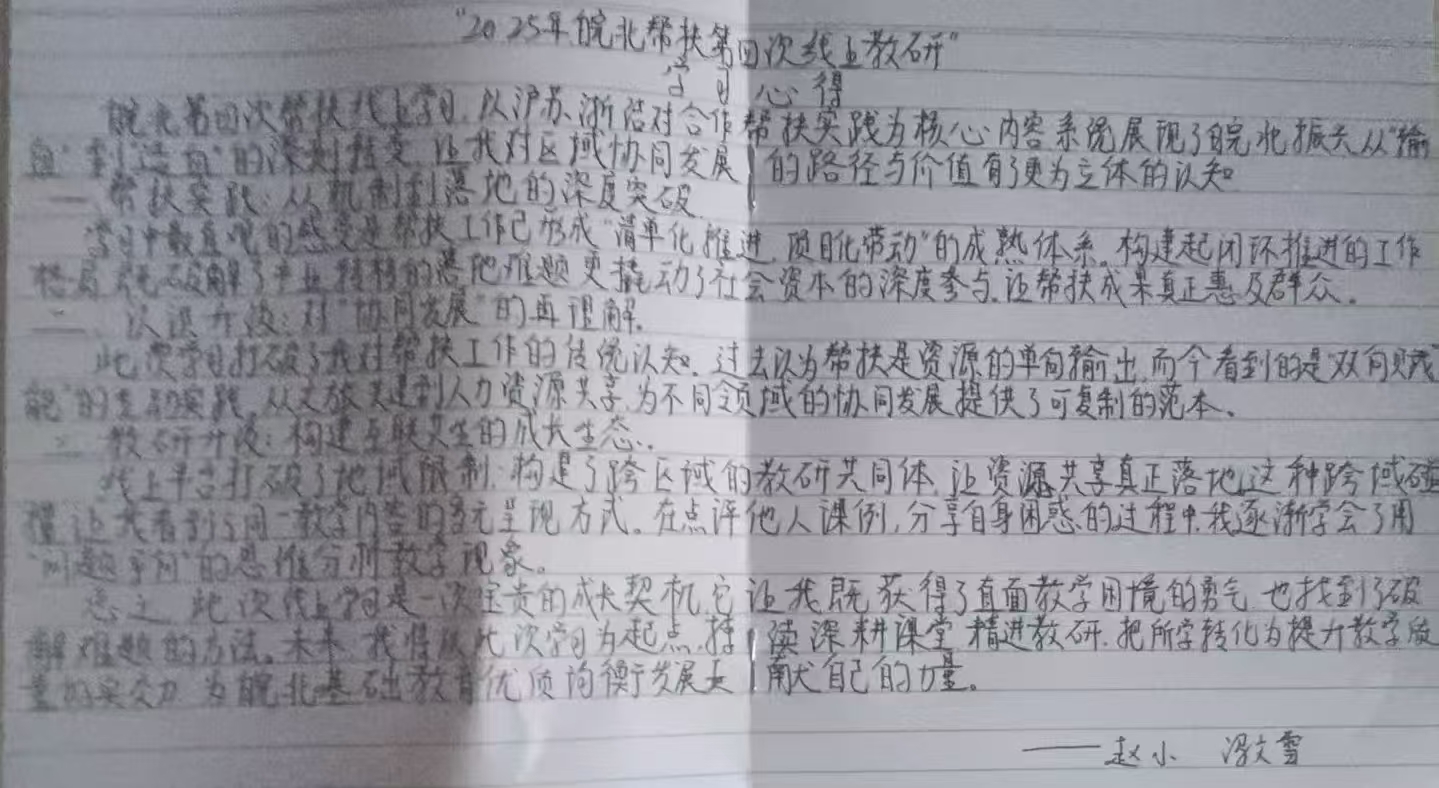 "2025年皖北帮扶第四次线上教研"
学习心得
皖北第四次帮扶线上学习,以沪苏浙结对合作帮扶实践为核心内容系统展现了皖北振兴从"输
血"到"造血"的深刻转变,让我对区域协同发展的路径与价值有了更为立体的认知
一 帮扶实践:从机制到落地的深度突破
学习中最直观的感受是帮扶工作已形成"清单化推进,项目化带动"的成熟体系。构建起闭环推进的工作
格局,既破解了产业转移的落地难题更撬动了社会资本的深度参与,让帮扶成果真正惠及群众。
二、认识升级:对"协同发展"的再理解.
此次学习打破了我对帮扶工作的传统认知.过去认为帮扶是资源的单向输出,而今看到的是"双向赋
能"的生动实践,从文旅共建到人力资源共享,为不同领域的协同发展提供了可复制的范本。
三 教研升级:构建互联共生的成长生态.
线上平台打破了地域限制,构建了跨区域的教研共同体,让资源共享真正落地,这种跨域碰
撞,让我看到了同一教学内容的多元呈现方式。在点评他人课例,分享自身困惑的过程中,我逐渐学会了用
"问题导向"的思维分析教学现象。
总之,此次线上学习是一次宝贵的成长契机,它让我既获得了直面教学困境的勇气,也找到了破
解难题的方法。未来,我将以此次学习为起点,持续深耕课堂,精进教研,把所学转化为提升教学质
量的实效力,为皖北基础教育优质均衡发展贡献自己的力量。
——赵小 冯文雪